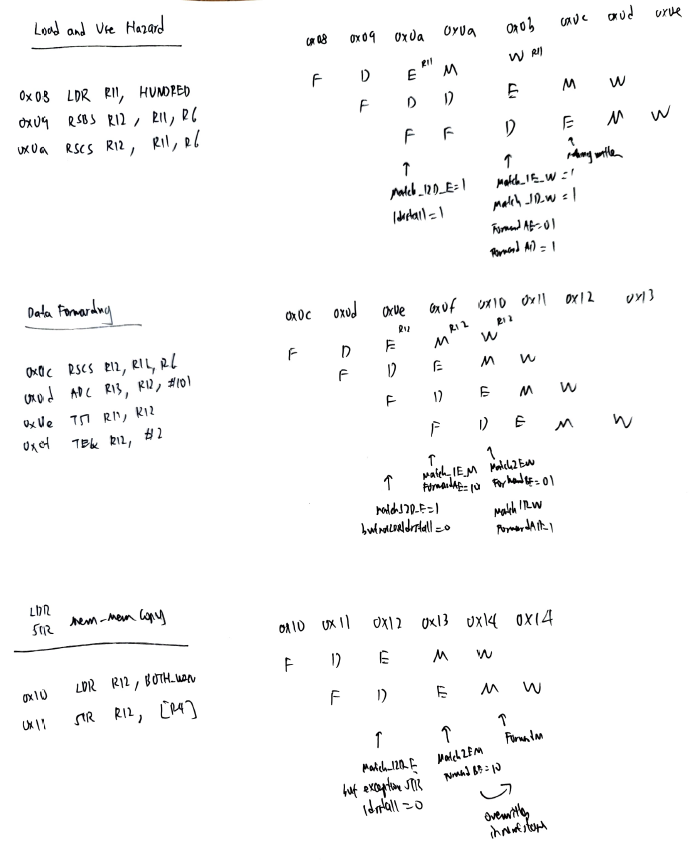 Load and Use Hazard
0x08 LDR R11, HUNDRED
0x09 RSBS R12, R11, R6
0x0a RSCS R12, R11, R6
0x08 0x09 0x0a 0x0a 0x0b 0x0c 0x0d 0x0e
F D E R11 M W R11
F D D E M W
F F D E M W
Match_12D_E=1
ldrstall=1
Match_1E_W=1
Match_1D_W=1
Forward AE=01
Forward AD=1
Data Forwarding
0x0c RSCS R12, R11, R6
0x0d ADC R13, R12, #101
0x0e TST R11, R12
0x0f TEQ R12, #2
0x0c 0x0d 0x0e 0x0f 0x10 0x11 0x12 0x13
F D E R12 M R12 W R12
F D E M W
F D E M W
F D E M W
Match12D_E=1
but not LDR ldrstall=0
Match_1E_M
ForwardAE=10
Match2EW
ForwardBE=01
Match 1D_W
ForwardAD=1
LDR
STR mem-mem Copy
0x10 LDR R12, BOTH_
0x11 STR R12, [R4]
0x10 0x11 0x12 0x13 0x14 0x14
F D E M W
F D E M W
Match_12D_E
but exception STR
ldrstall=0
Match2EM
Forward BE=10
ForwardM